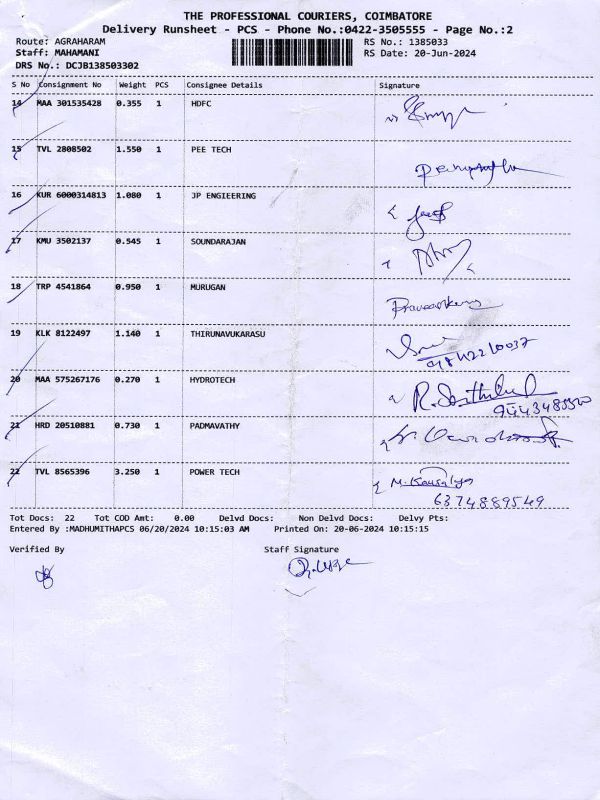 THE PROFESSIONAL COURIERS, COIMBATORE
Delivery Runsheet - PCS - Phone No.:0422-3505555 - Page No.:2
Route: AGRAHARAM RS No.: 1385033
Staff: MAHAMANI RS Date: 20-Jun-2024
DRS No.: DCJB138503302
S No Consignment No Weight PCS Consignee Details Signature
14 MAA 301535428 0.355 1 HDFC
15 TVL 2808502 1.550 1 PEE TECH
16 KUR 6000314813 1.080 1 JP ENGIEERING
17 KMU 3502137 0.545 1 SOUNDARAJAN
18 TRP 4541864 0.950 1 MURUGAN
19 KLK 8122497 1.140 1 THIRUNAVUKARASU
9842210037
20 MAA 575267176 0.270 1 HYDROTECH
21 HRD 20510881 0.730 1 PADMAVATHY
22 TVL 8565396 3.250 1 POWER TECH M. Kausalya
6374889549
Tot Docs: 22 Tot COD Amt: 0.00 Delvd Docs: Non Delvd Docs: Delvy Pts:
Entered By :MADHUMITHAPCS 06/20/2024 10:15:03 AM Printed On: 20-06-2024 10:15:15
Verified By Staff Signature